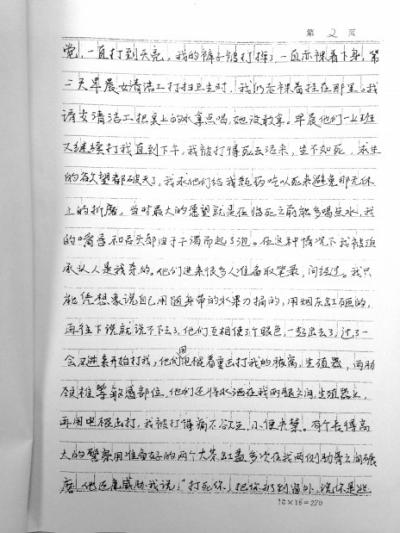 第 2 页
觉，一直打到天亮，我的裤子被打掉了，一直赤裸着下身，第
二天早晨女清洁工打扫卫生时，我仍赤裸着挂在那里。我
请女清洁工把桌上的水拿点喝，她没敢拿。早晨他们一上班
又继续打我直到下午，我被打得死去活来，生不如死，求生
的欲望都破灭了，我求他们给我瓶药吃以死来避免那无休
止的折磨。当时最大的愿望就是在临死之前能多喝点水，我
的嘴唇和舌头都由于干渴而起了泡。在这种情况下我被迫
承认人是我杀的。他们进来很多人准备取笔录，问经过。我只
能凭想象说自己用随身带的水果刀捅的，用烟灰缸砸的，
再往下说就说不下去了，他们互相使个眼色，一起出去了，过了一
会又进来开始打我，他们用电棍着重电打我的胳窝，生殖器，两肋
颈椎等敏感部位，他们还将水洒在我的两腿之间，生殖器上，
再用电棍击打，我被打得痛不欲生，小便失禁。有个长得高
大的警察用准备好的两个大茶缸盖多次在我两侧肋骨之间碾
磨，他还威胁我说："打死你，把你扔到窗外，说你是逃
18×15=270